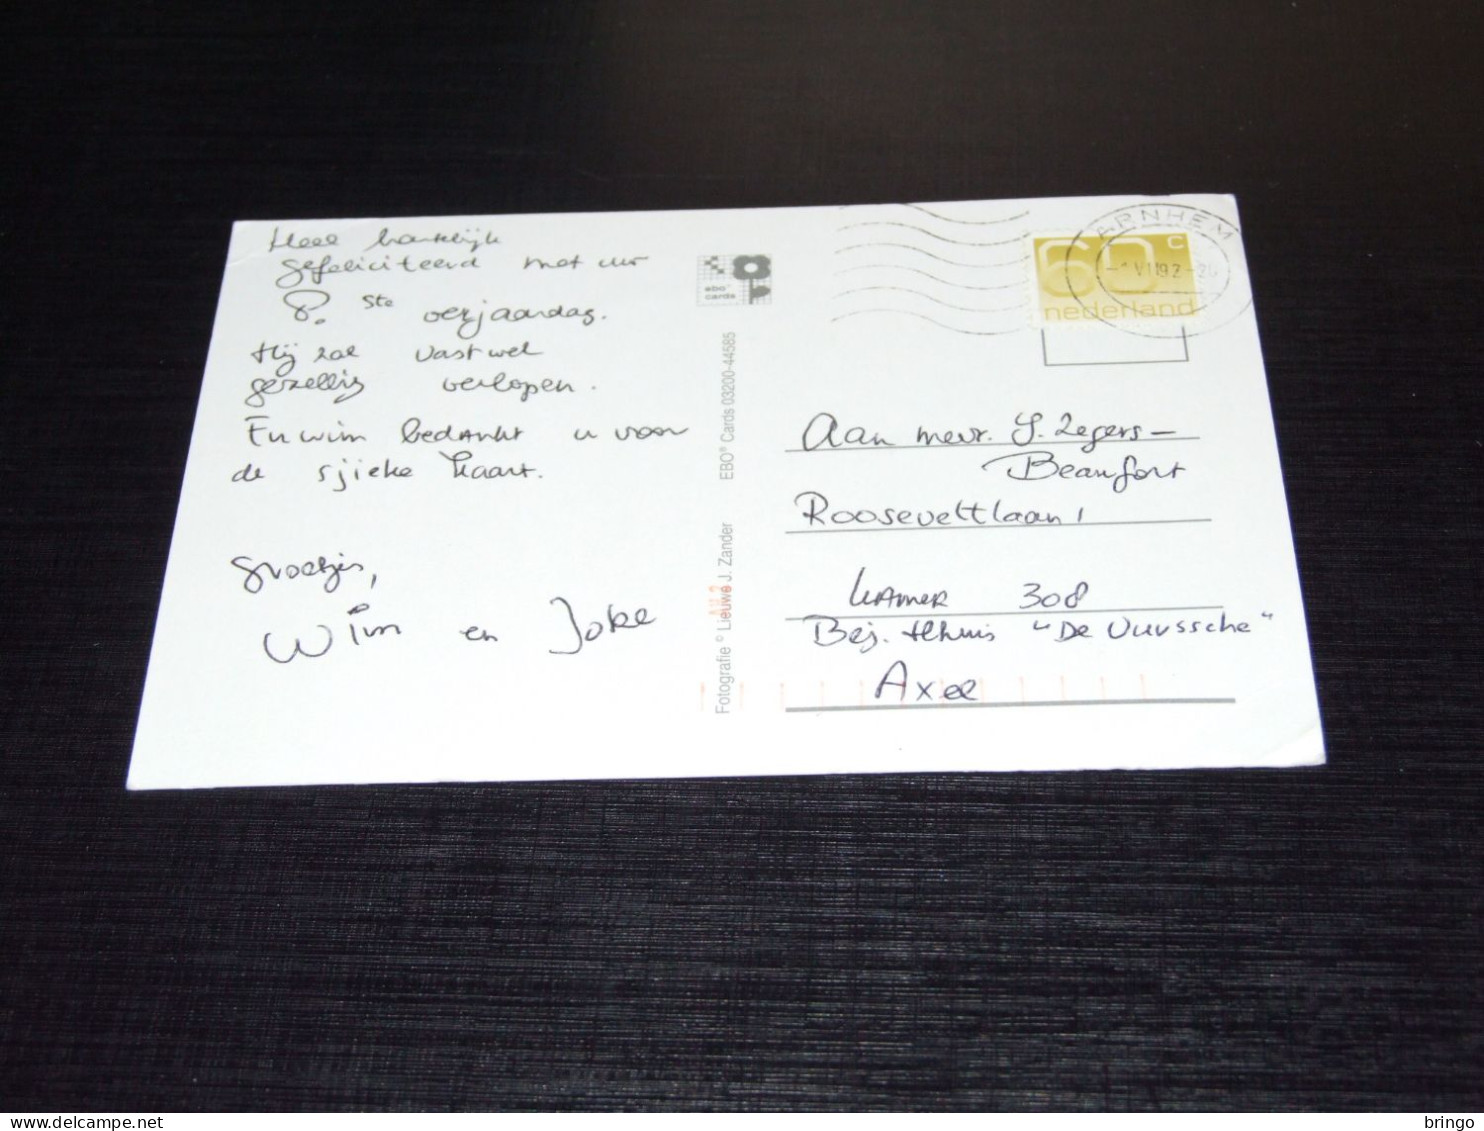 Heel hartelijk
gefeliciteerd met uw
?. ste verjaardag.
Hij zal vast wel
gezellig verlopen.
En wim bedankt u voor
de sjieke kaart.
Groetjes,
Wim en Joke
ebo
cards
EBO® Cards 03200-44585
Fotografie © Lieuwe J. Zander
ARNHEM
60 c
nederland
Aan mevr. S. Zegers-
Beaufort
Rooseveltlaan 1
KAMER 308
Bej. tehuis "De Vurssche"
Axel
delcampe.net
bringo